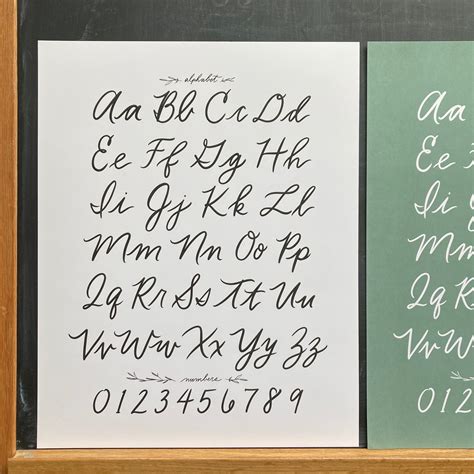 alphabet
Aa Bb Cc Dd
Ee Ff Gg Hh
Ii Jj Kk Ll
Mm Nn Oo Pp
Qq Rr Ss Tt Uu
Vv Ww Xx Yy Zz
numbers
0 1 2 3 4 5 6 7 8 9
Aa
Ee
Ii
Mm
Qq
Vv
0 1 2